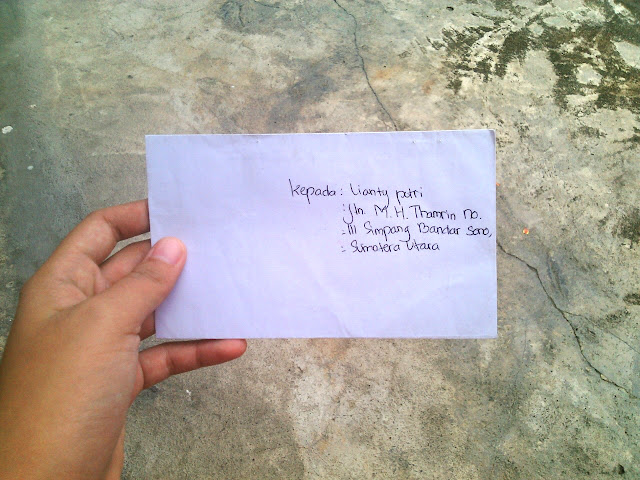 Kepada : Lianty putri
: Jln. M. H. Thamrin no.
: 111 Simpang Bandar Sono,
: Sumatera Utara